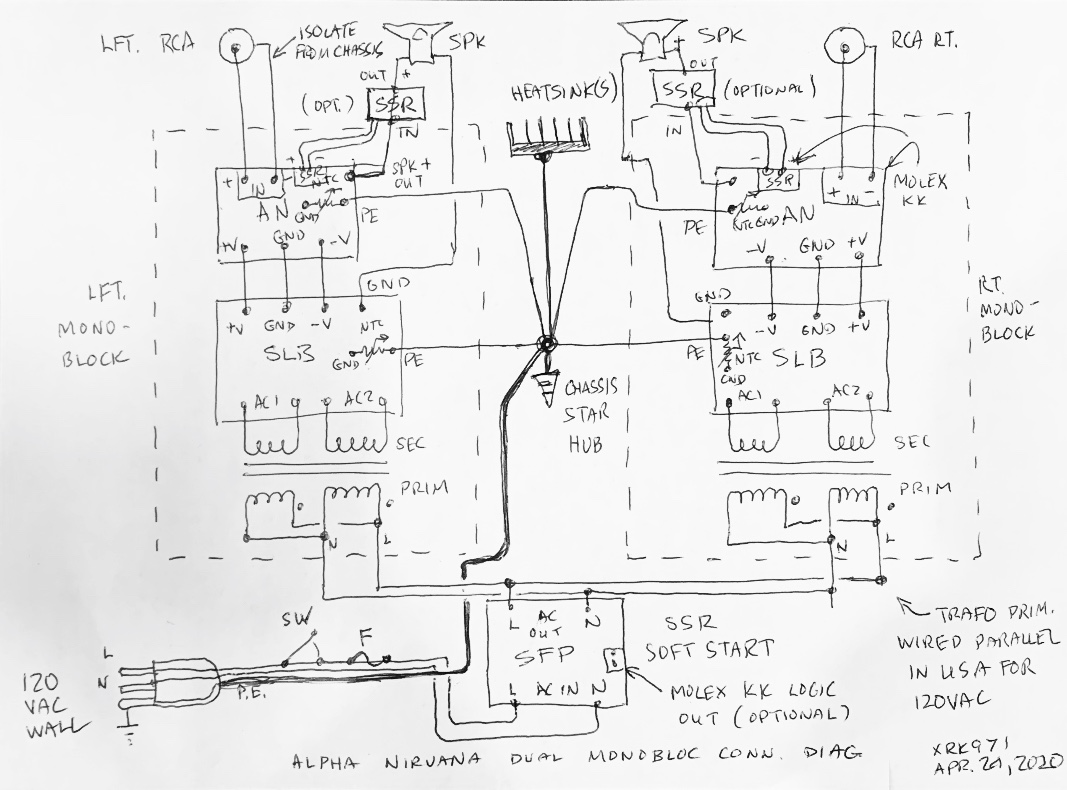 LFT. RCA
ISOLATE
FROM CHASSIS
SPK
SPK
RCA RT.
OUT +
(OPT.)
SSR
IN
HEATSINK(S)
+
OUT
SSR
(OPTIONAL)
IN
+ IN -
AN
+ SSR -
NTC
GND
SPK +
OUT
PE
+V GND -V
GND
+ -
SSR
+ IN -
MOLEX
KK
NTC GND AN
PE
-V GND +V
LFT.
MONO-
BLOCK
+V GND -V NTC
SLB
GND
PE
AC1 AC2
SEC
PRIM
N L
CHASSIS
STAR
HUB
GND
-V GND +V
PE
NTC
SLB
GND
AC1 AC2
SEC
PRIM
N L
RT.
MONO-
BLOCK
SW
F
L
N
120
VAC
WALL
P.E.
L AC N
OUT
SFP
L AC IN N
SSR
SOFT START
MOLEX KK LOGIC
OUT (OPTIONAL)
TRAFO PRIM.
WIRED PARALLEL
IN USA FOR
120VAC
ALPHA NIRVANA DUAL MONOBLOC CONN. DIAG
XRK971